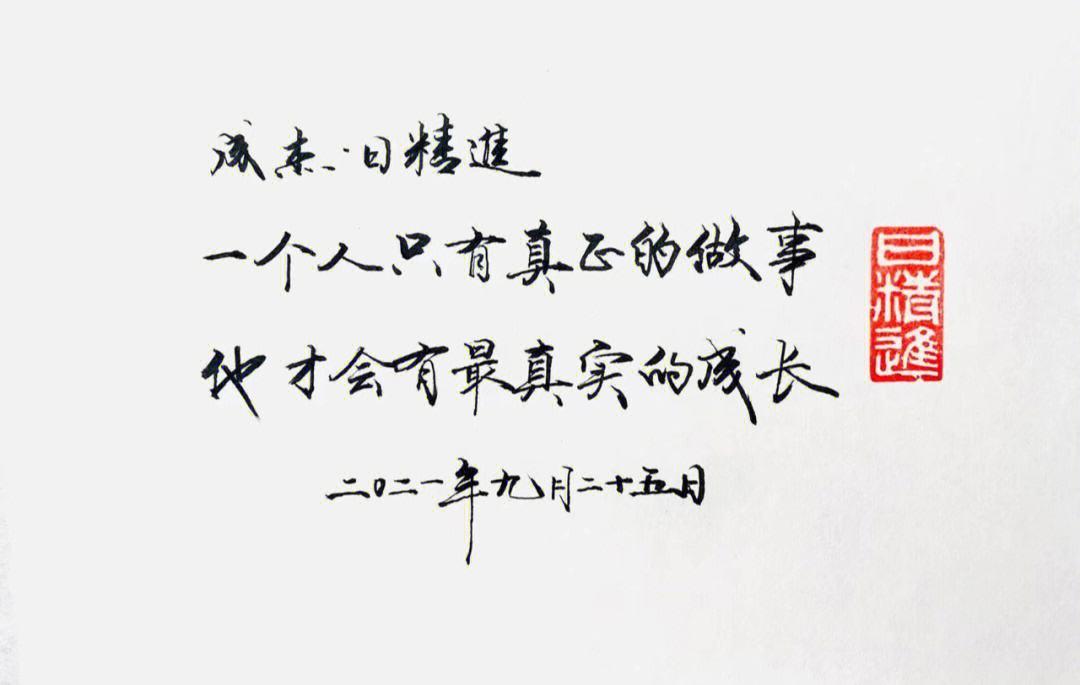 成杰·日精進
一个人只有真正的做事
他才会有最真实的成长
二〇二一年九月二十五日
日精進